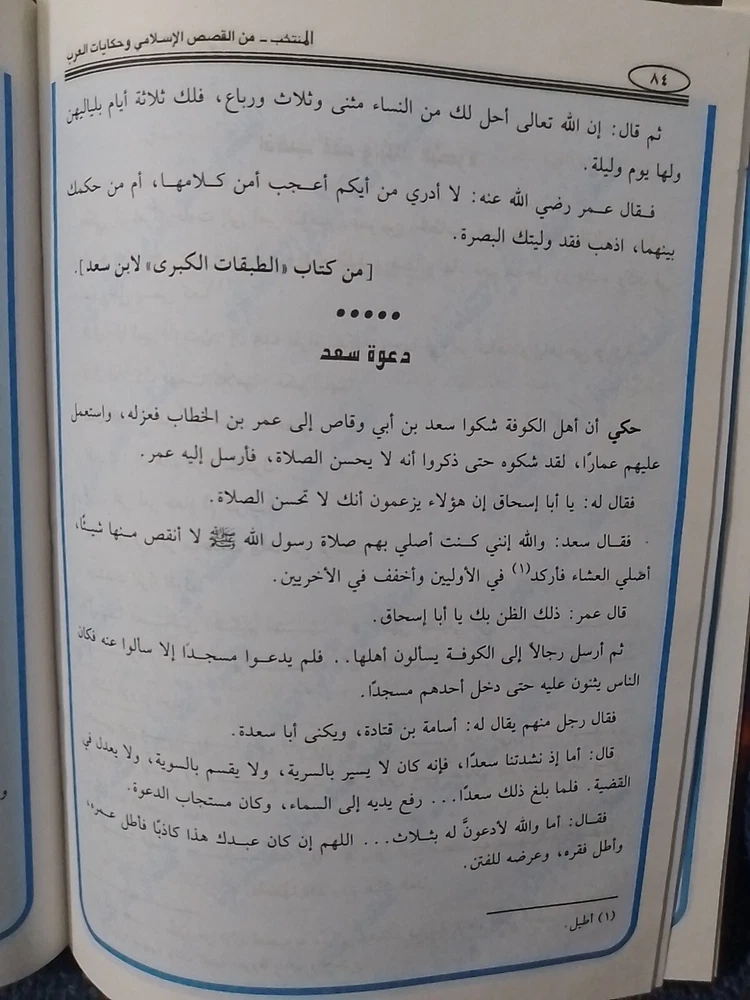 المنتخب - من القصص الإسلامي وحكايات العرب
٨٤
ثم قال: إن الله تعالى أحل لك من النساء مثنى وثلاث ورباع، فلك ثلاثة أيام بلياليهن
ولها يوم وليلة.
فـقال عـمر رضي الله عنه: لا أدري من أيكم أعـجب أمن كـلامهـا، أم من حكمك
بينهما، اذهب فقد وليتك البصرة.
[من كتاب «الطبقات الكبرى» لابن سعد].
•••••
دعوة سعد
حكي أن أهل الكوفة شكوا سعد بن أبي وقاص إلى عمر بن الخطاب فعزله، واستعمل
عليهم عمارًا، لقد شكوه حتى ذكروا أنه لا يحسن الصلاة، فأرسل إليه عمر.
فقال له: يا أبا إسحاق إن هؤلاء يزعمون أنك لا تحسن الصلاة.
فقـال سعد: والله إنني كـنت أصلي بهم صلاة رسول الله ﷺ لا أنقص مـنها شيئًا،
أصلي العشاء فأركد(١) في الأوليين وأخفف في الأخريين.
قال عمر: ذلك الظن بك يا أبا إسحاق.
ثم أرسل رجالاً إلى الكوفـة يسألون أهلها.. فلم يدعـوا مسجـدًا إلا سالوا عنه فكان
الناس يثنون عليه حتى دخل أحدهم مسجدًا.
فقال رجل منهم يقال له: أسامة بن قتادة، ويكنى أبا سعدة.
قال: أما إذ نشدتنا سعدًا، فإنه كان لا يسير بالسرية، ولا يقسم بالسوية، ولا يعدل في
القضية. فلما بلغ ذلك سعدًا... رفع يديه إلى السماء، وكان مستجاب الدعوة.
فقـال: أما والله لأدعونَّ له بثـلاث... اللهم إن كان عبـدك هذا كاذبًا فأطل عمـره،
وأطل فقره، وعرضه للفتن.
(١) أطيل.